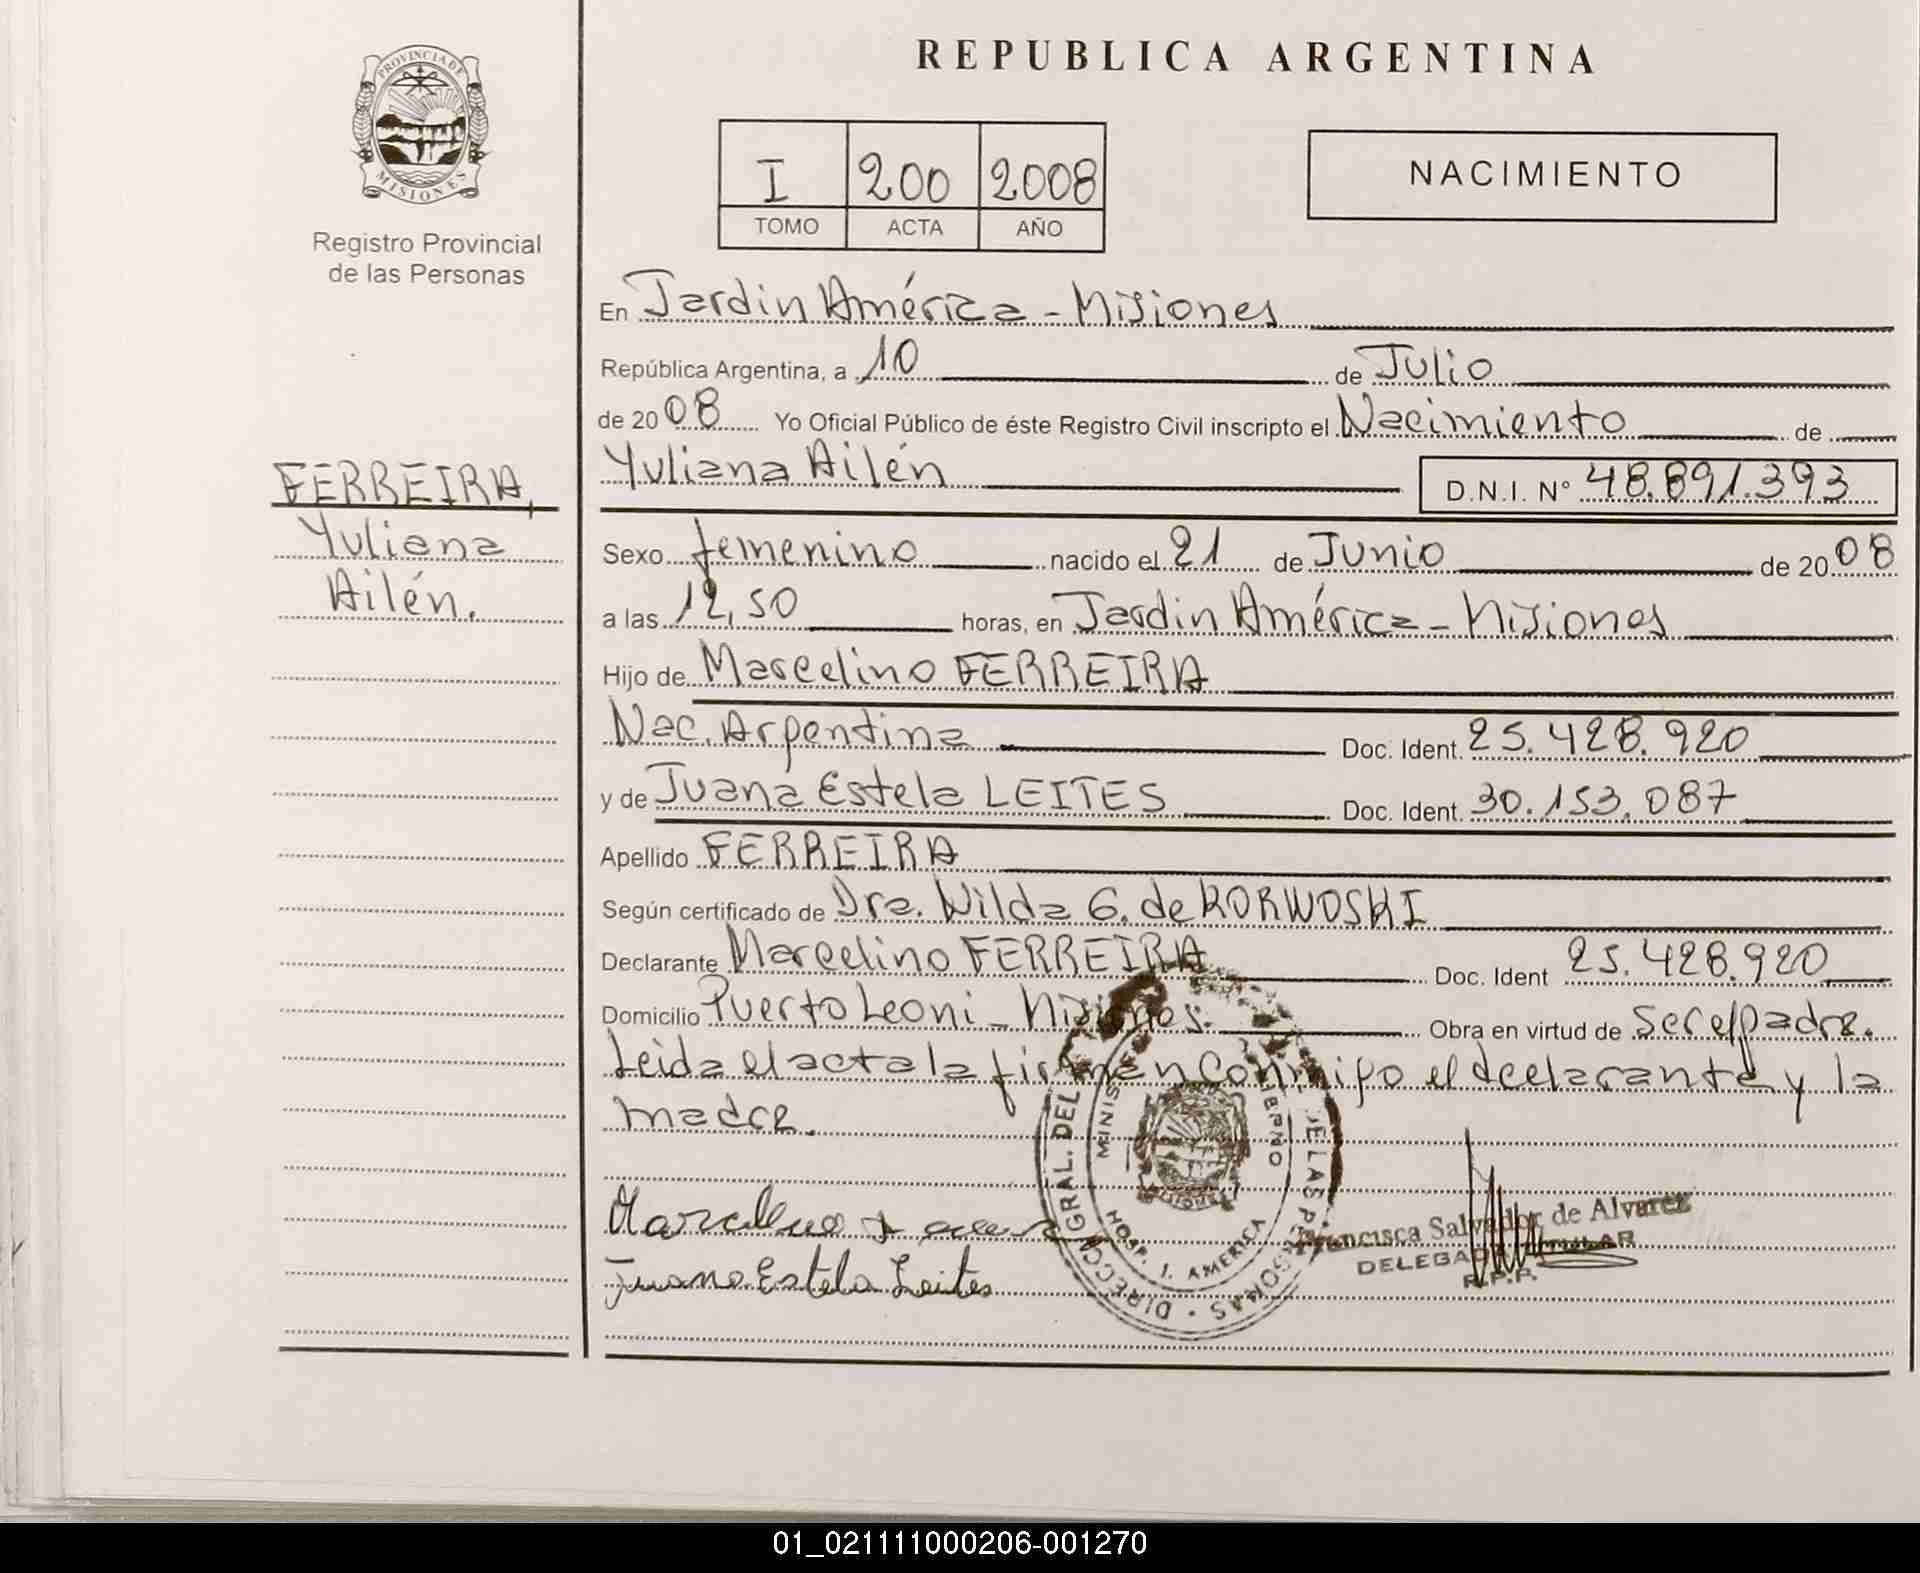 PROVINCIA DE
MISIONES
Registro Provincial
de las Personas
FERREIRA,
Yuliana
Ailén.
REPUBLICA ARGENTINA
I 200 2008
TOMO ACTA AÑO
NACIMIENTO
En Jardin América - Misiones
República Argentina, a 10 de Julio
de 2008 Yo Oficial Público de éste Registro Civil inscripto el Nacimiento de
Yuliana Ailén D.N.I. N° 48.891.393
Sexo femenino nacido el 21 de Junio de 2008
a las 12,50 horas, en Jardin América - Misiones
Hijo de Marcelino FERREIRA
Nac. Argentina Doc. Ident. 25.428.920
y de Juana Estela LEITES Doc. Ident. 30.153.087
Apellido FERREIRA
Según certificado de Dra. Nilda G. de KORWOSKI
Declarante Marcelino FERREIRA Doc. Ident 25.428.920
Domicilio Puerto Leoni - Misiones. Obra en virtud de Ser el padre.
Leida el acta la firman conmigo el declarante y la
madre.
DIRECC. GRAL. DEL DE LAS PERSONAS
HOSP. J. AMERICA
Francisca Salvador de Alvarez
DELEGADA TITULAR
R.P.P.
Juana Estela Leites
01_021111000206-001270